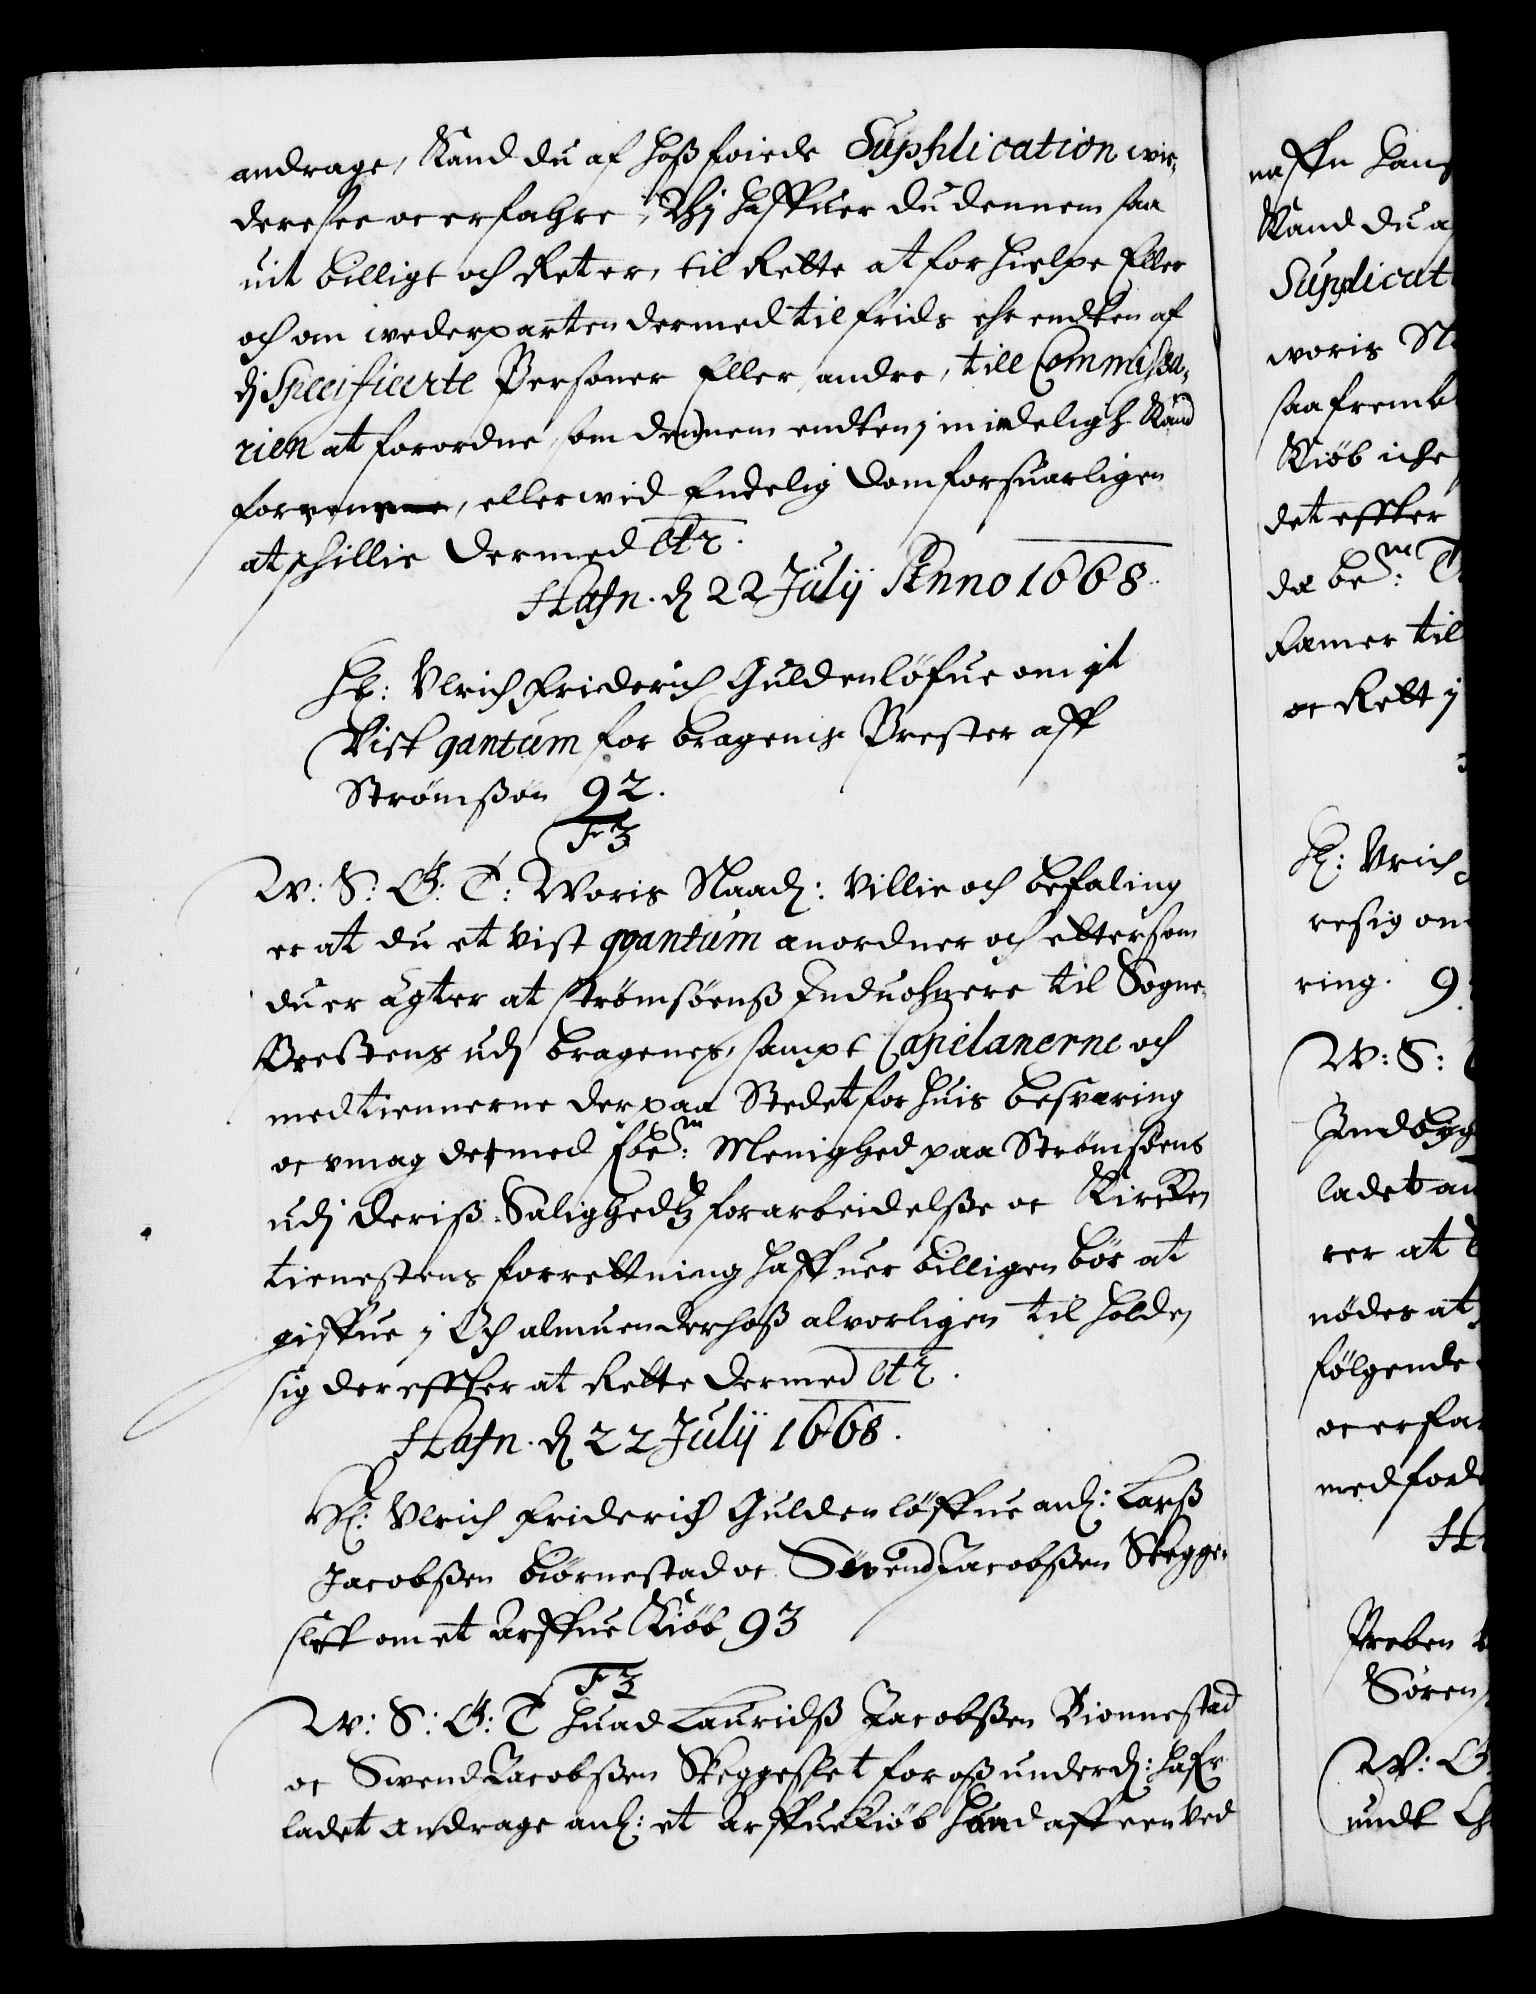 andrage, Kand du af hoßføiede Supplication wi-
deresee oc erfahre, Thj haffuer du dennem saa
uit billigt och Ret er, til Rette at forhielpe Eller
och om wederparten dermed til frids ehr endten af
dj Specificerte Personer Eller andre, till Commissa-
rien at forordne, som dennem endten j mindelighed Kand
foreene, eller wid Endelig dom forsuarligen
at schillie dermed etc.
Hafn. d 22 Julij Anno 1668.
Hr: Vlrich Friderich Guldenløfue om it
Vist qantum for bragenis Prester aff
Strømßøn 92.
F3
W: S: G: T: Woris Naad: Villie och befaling
er at du et vist qvantum anordner och eltersom
du er agter at strømsøenß Induohnere til Sogne-
Presten udj bragenes, sampt Capelanerne och
medtiennerne der paa Stedet for huis besværing
oc vmag de med forbem: Menighed paa Strømsøens
udj deris Salighedtz forarbeidelße oc Kircken
tienestens forrettning haffuer billigen bør at
giffue j Och almuen derhoß alvorligen tilholden
sig dereffter at Rette dermed etc.
Hafn. d 22 Julij 1668.
Hr: Vlrich Friderich Guldenløffue anl: Larß
Jacobßen biørnestad oc Svend Jacobßen Skegge-
steff om et Arffue Kiøb 93
F3
W: S: G: T Huad Lauridß Jacobßen Bionnestad
oc Svend Jacobßen Skeggestet for oß underd: hafr
ladet andrage anl: et Arffuekiøb Hand aff een ved
naffn Hans
Kand du a
Supplicat
woris N
saa fremb
Kiøb iche
det effter
da bem: T
kamer til
oc Rett j
Hr: Vrich
resig om
ring. 9
W: S:
Indbyg
ladet an
rer at
nødes at
følgende
oc erfar
med ford
H
Preben
Søren
W: G
undt